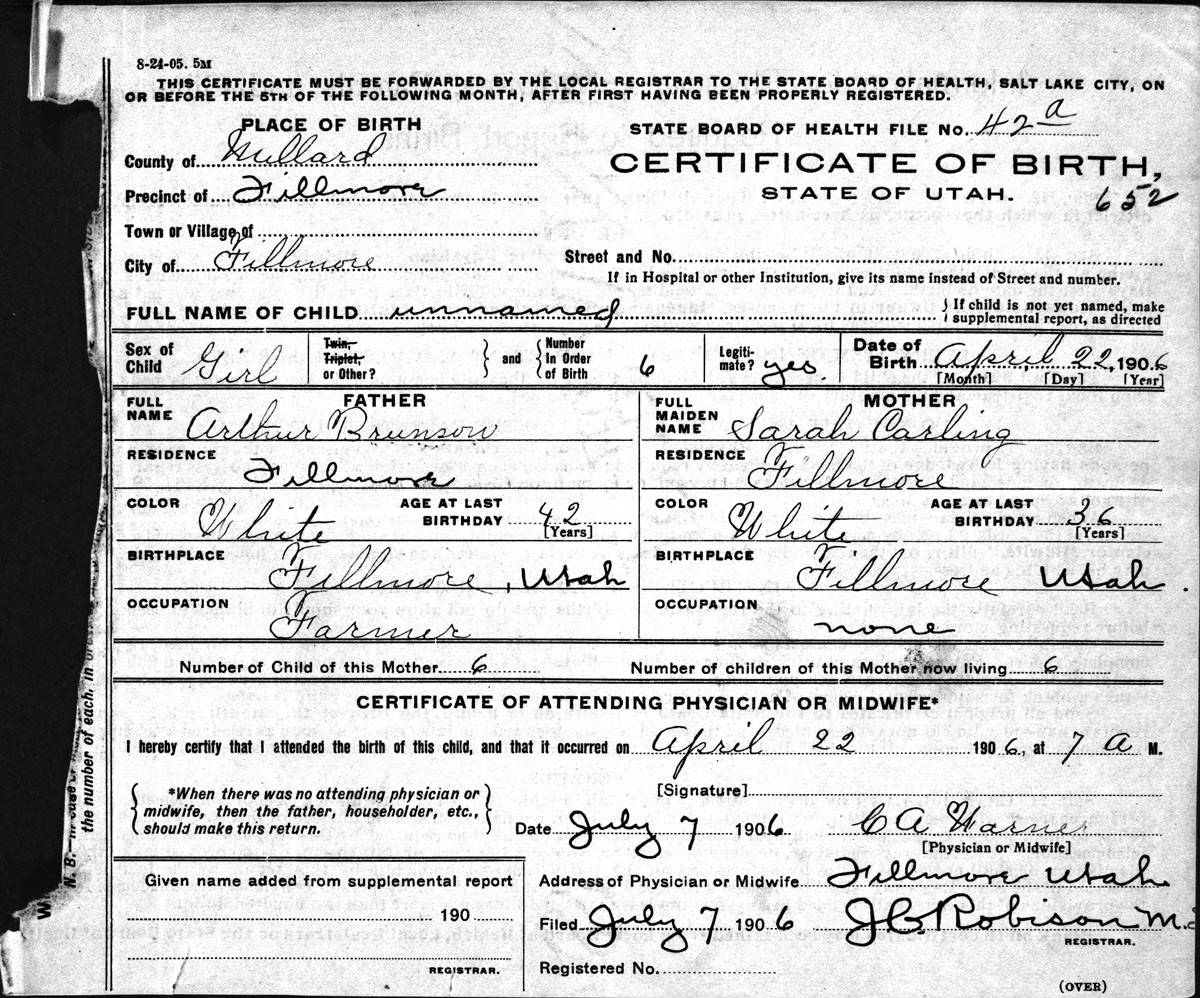 8-24-05. 5M
THIS CERTIFICATE MUST BE FORWARDED BY THE LOCAL REGISTRAR TO THE STATE BOARD OF HEALTH, SALT LAKE CITY, ON
OR BEFORE THE 5TH OF THE FOLLOWING MONTH, AFTER FIRST HAVING BEEN PROPERLY REGISTERED.
PLACE OF BIRTH
County of Millard
Precinct of Fillmore
Town or Village of
City of Fillmore
STATE BOARD OF HEALTH FILE No. 42a
CERTIFICATE OF BIRTH,
STATE OF UTAH.
652
Street and No.
If in Hospital or other Institution, give its name instead of Street and number.
FULL NAME OF CHILD unnamed { If child is not yet named, make
supplemental report, as directed
Sex of Child Girl
Twin, Triplet, or Other? } and { Number in Order of Birth 6
Legiti-mate? yes.
Date of Birth April 22, 1906
[Month] [Day] [Year]
FATHER
FULL NAME Arthur Brunson
RESIDENCE Fillmore
COLOR White AGE AT LAST BIRTHDAY 42 [Years]
BIRTHPLACE Fillmore, Utah
OCCUPATION Farmer
MOTHER
FULL MAIDEN NAME Sarah Carling
RESIDENCE Fillmore
COLOR White AGE AT LAST BIRTHDAY 36 [Years]
BIRTHPLACE Fillmore Utah.
OCCUPATION none
Number of Child of this Mother 6 Number of children of this Mother now living 6
CERTIFICATE OF ATTENDING PHYSICIAN OR MIDWIFE*
I hereby certify that I attended the birth of this child, and that it occurred on April 22 1906, at 7 A M.
{ *When there was no attending physician or
midwife, then the father, householder, etc.,
should make this return. }
[Signature]
Date July 7 1906 C A Warner
[Physician or Midwife]
Given name added from supplemental report
190
REGISTRAR.
Address of Physician or Midwife Fillmore Utah
Filed July 7 1906 J C Robison M.
REGISTRAR.
Registered No.
(OVER)
N. B.—
the number of each, in